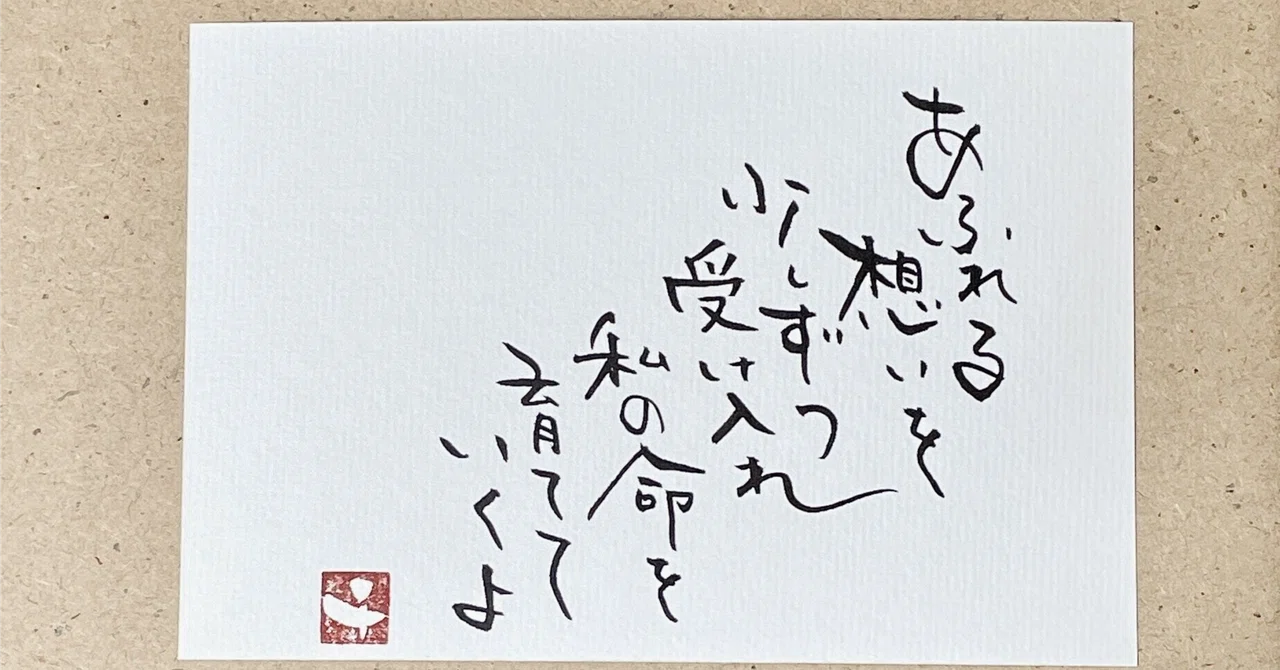 あふれる
想いを
少しずつ
受け入れ
私の命を
育てて
いくよ